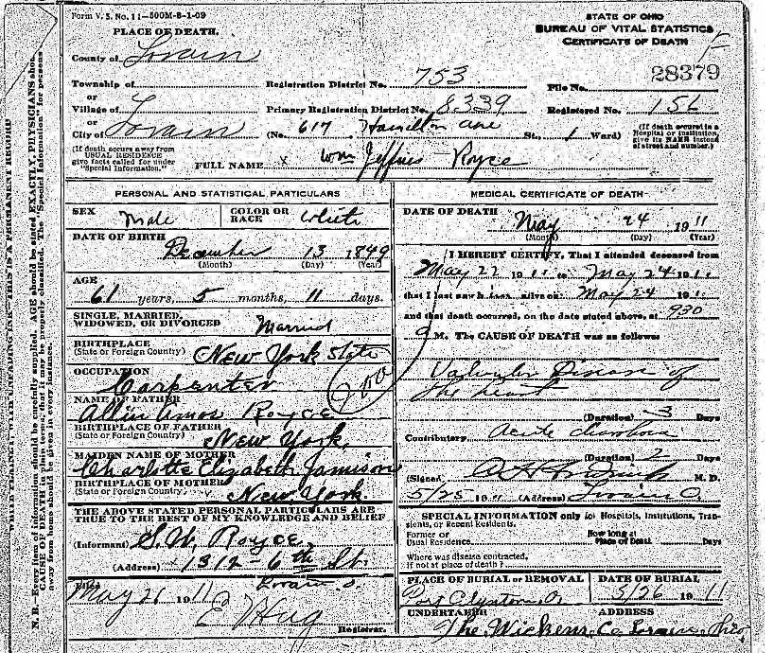 Form V. S. No. 11-500M-8-1-09
STATE OF OHIO
BUREAU OF VITAL STATISTICS
CERTIFICATE OF DEATH
PLACE OF DEATH.
County of Lorain
Township of
or
Village of
or
City of Lorain
Registration District No. 753
File No. 28379
Primary Registration District No. 8339
Registered No. 156
(No. 617 Hamilton ave St., 1 Ward)
(If death occured in a Hospital or institution, give its NAME instead of street and number.)
(If death occurs away from USUAL RESIDENCE give facts called for under "Special Information.")
FULL NAME x Wm Jeffries Royce
PERSONAL AND STATISTICAL PARTICULARS
SEX Male
COLOR OR RACE White
DATE OF BIRTH
December 13 1849
(Month) (Day) (Year)
AGE
61 years, 5 months, 11 days.
SINGLE, MARRIED, WIDOWED, OR DIVORCED Married
BIRTHPLACE
(State or Foreign Country) New York State
OCCUPATION
Carpenter
NAME OF FATHER
Amos Royce
BIRTHPLACE OF FATHER
(State or Foreign Country) New York
MAIDEN NAME OF MOTHER
Charlotte Elizabeth Jamison
BIRTHPLACE OF MOTHER
(State or Foreign Country) New York.
THE ABOVE STATED PERSONAL PARTICULARS ARE TRUE TO THE BEST OF MY KNOWLEDGE AND BELIEF
(Informant) S. W. Royce,
(Address) 1312-6th St.
Lorain O.
May 26 1911
E Hug
Registrar.
MEDICAL CERTIFICATE OF DEATH
DATE OF DEATH
May 24 1911
(Month) (Day) (Year)
I HEREBY CERTIFY, That I attended deceased from
May 22 1911 to May 24 191
that I last saw h alive on May 24 191
and that death occurred, on the date stated above, at 930
M. The CAUSE OF DEATH was as follows:
Valvular Disease of
the heart
(Duration) 3 Days
Contributory acute
(Duration) 2 Days
(Signed) M. D.
5/25 1911 (Address) Lorain O
SPECIAL INFORMATION only for Hospitals, Institutions, Transients, or Recent Residents.
Former or Usual Residence
How long at Place of Death Days
Where was disease contracted, if not at place of death?
PLACE OF BURIAL or REMOVAL
Port Clinton, O
DATE OF BURIAL
5/26 1911
UNDERTAKER ADDRESS
The Wickens Co. Lorain, Ohio